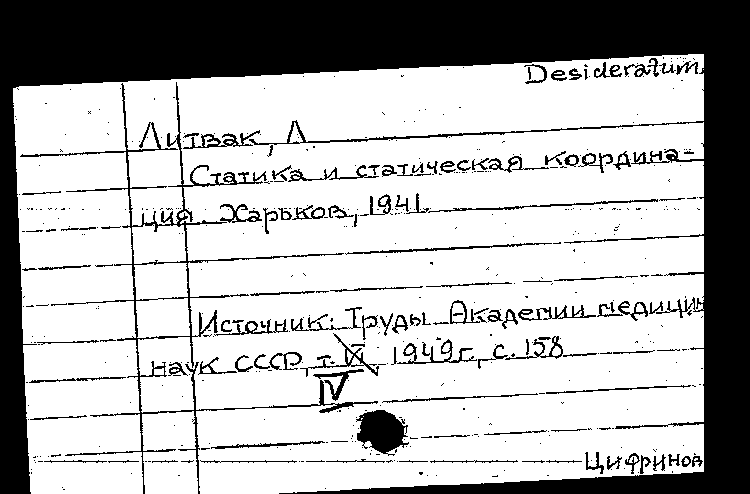 Desideratum
Литвак, Л
Статика и статическая координа-
ция. Харьков, 1941.
Источник: Труды Академии медицин
наук СССР, т. VI, 1949 г., с. 158
IV
Цифринов